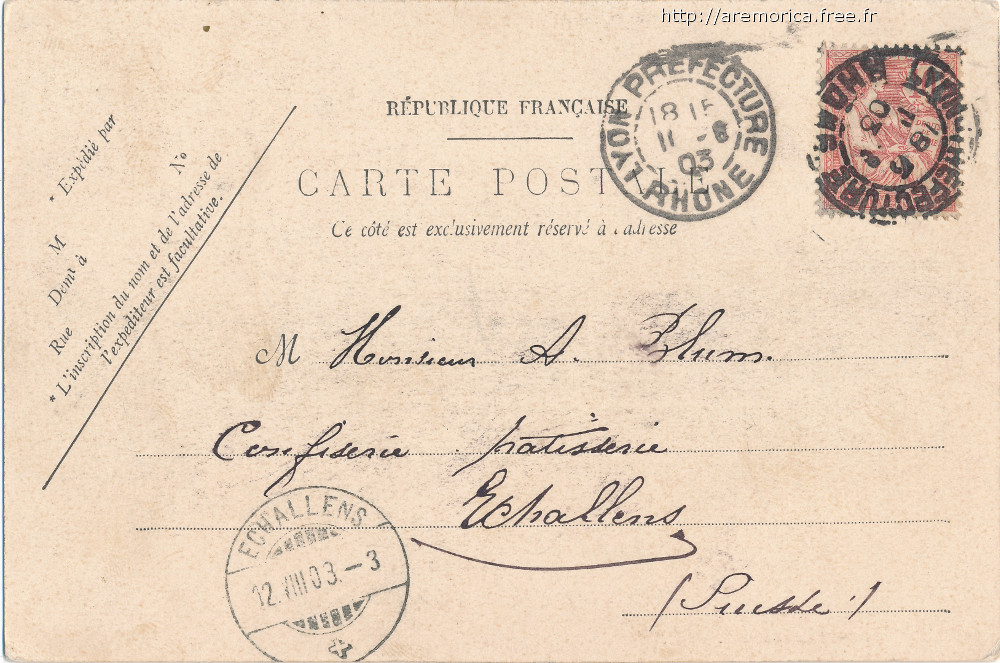 http://aremorica.free.fr
RÉPUBLIQUE FRANÇAISE
CARTE POSTALE
Ce côté est exclusivement réservé à l'adresse
* Expédié par
M
No
Demt à
Rue
* L'inscription du nom et de l'adresse de
l'expéditeur est facultative.
LYON PREFECTURE
1815
11 - 8
03
RHONE
LYON PREFECTURE
RHONE
M Monsieur A. Blum.
Confiserie patisserie
Echallens
(Suisse)
ECHALLENS
12.VIII 03.-3